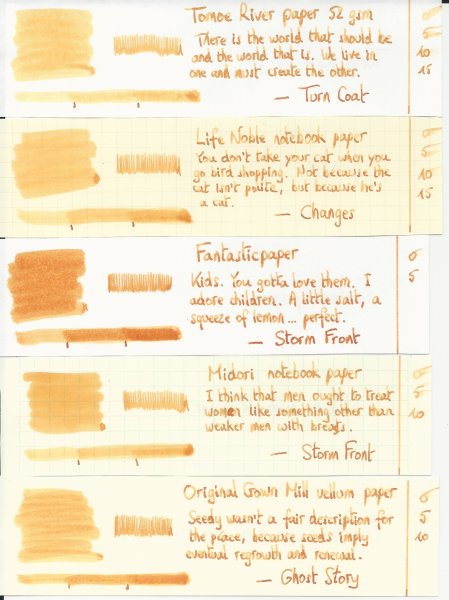 Tomoe River paper 52 gsm
There is the world that should be
and the world that is. We live in
one and must create the other.
— Turn Coat
0
5
10
15
Life Noble notebook paper
You don't take your cat when you
go bird shopping. Not because the
cat isn't polite, but because he's
a cat.
— Changes
0
5
10
15
Fantasticpaper
Kids. You gotta love them. I
adore children. A little salt, a
squeeze of lemon... perfect.
— Storm Front
0
5
Midori notebook paper
I think that men ought to treat
women like something other than
weaker men with breasts.
— Storm Front
0
5
10
Original Crown Mill vellum paper
Seedy wasn't a fair description for
the place, because seeds imply
eventual regrowth and renewal.
— Ghost Story
0
5
10